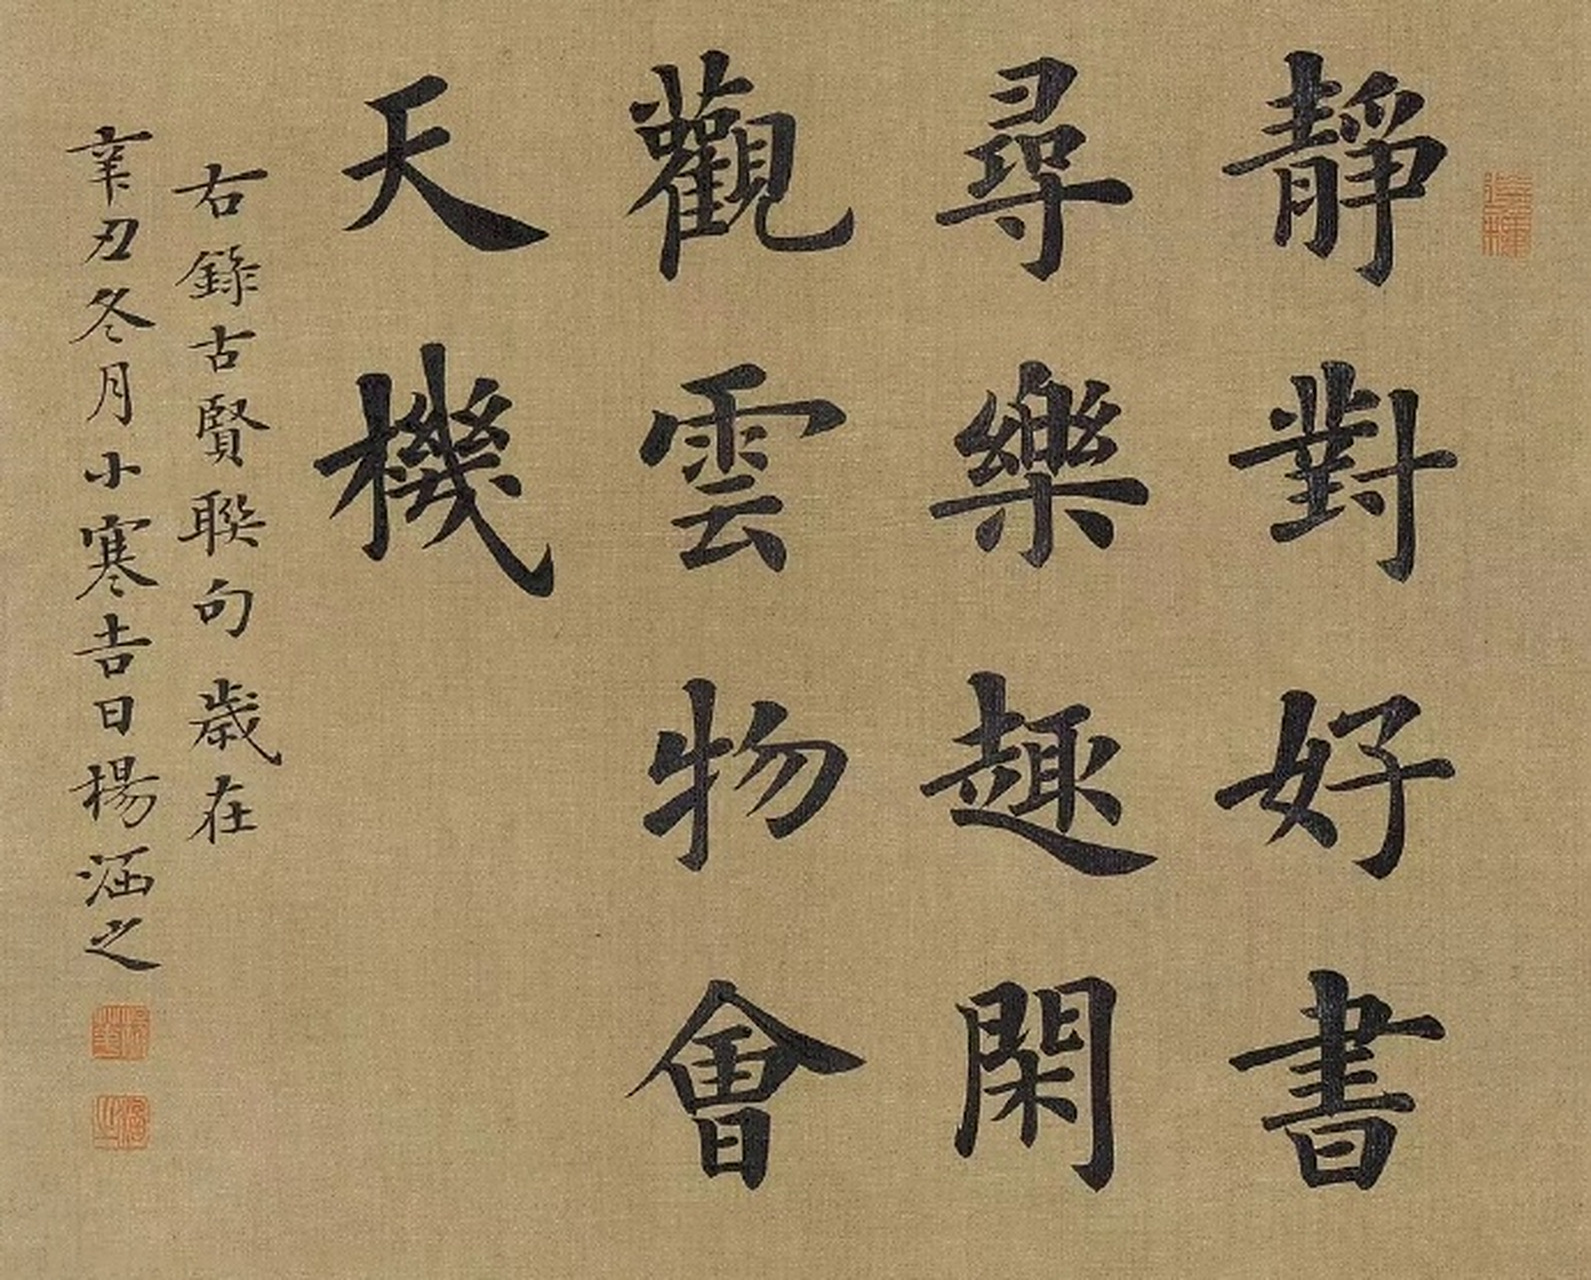 靜對好書
尋樂趣閑
觀雲物會
天機
右錄古賢聯句歲在
辛丑冬月小寒吉日楊涵之